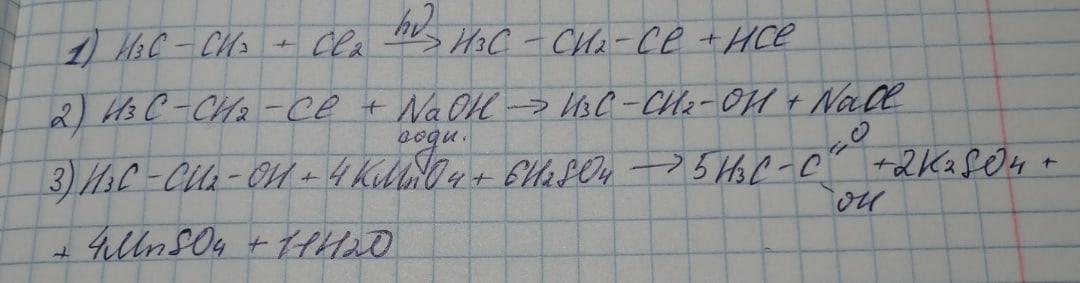 1) H3C - CH3 + Cl2 hν→ H3C - CH2 - Cl + HCl
2) H3C - CH2 - Cl + NaOH → H3C - CH2 - OH + NaCl
водн.
3) H3C - CH2 - OH + 4KMnO4 + 6H2SO4 → 5H3C - C =O -OH + 2K2SO4 +
+ 4MnSO4 + 11H2O